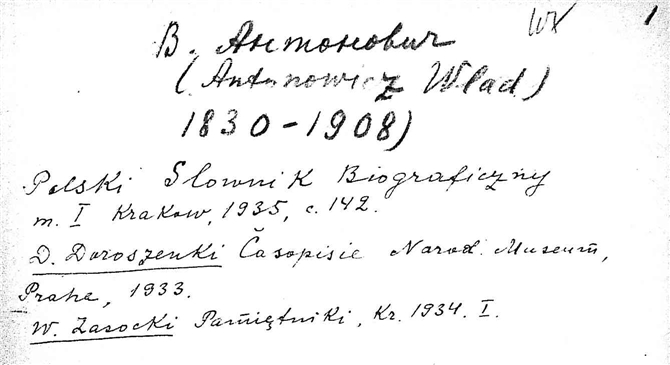 1
В. Антонович
(Antonowicz Wlad)
1830-1908)
Polski Slownik Biograficzny
т. I Krakow, 1935, с. 142.
D. Doroszenki Časopisie Narod. Museum,
Praha, 1933.
W. Zasocki Pamiętniki, Kr. 1934. I.